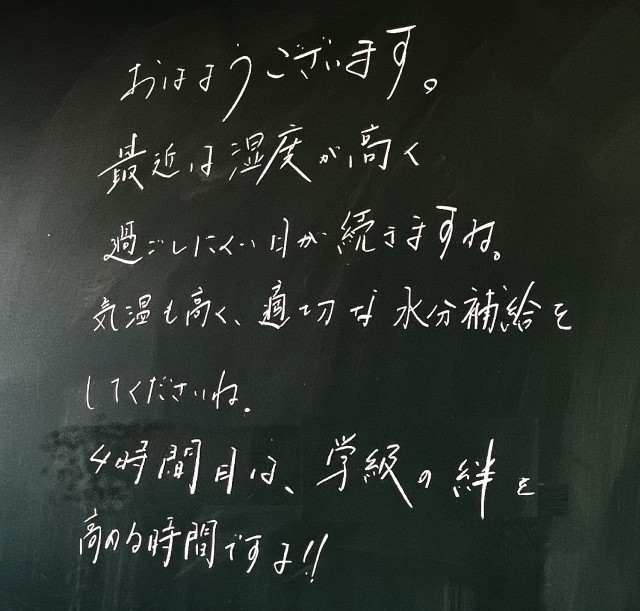 おはようございます。
最近は湿度が高く
過ごしにくい日が続きますね。
気温も高く、適切な水分補給を
してくださいね。
4時間目は、学級の絆を
高める時間ですよ!!